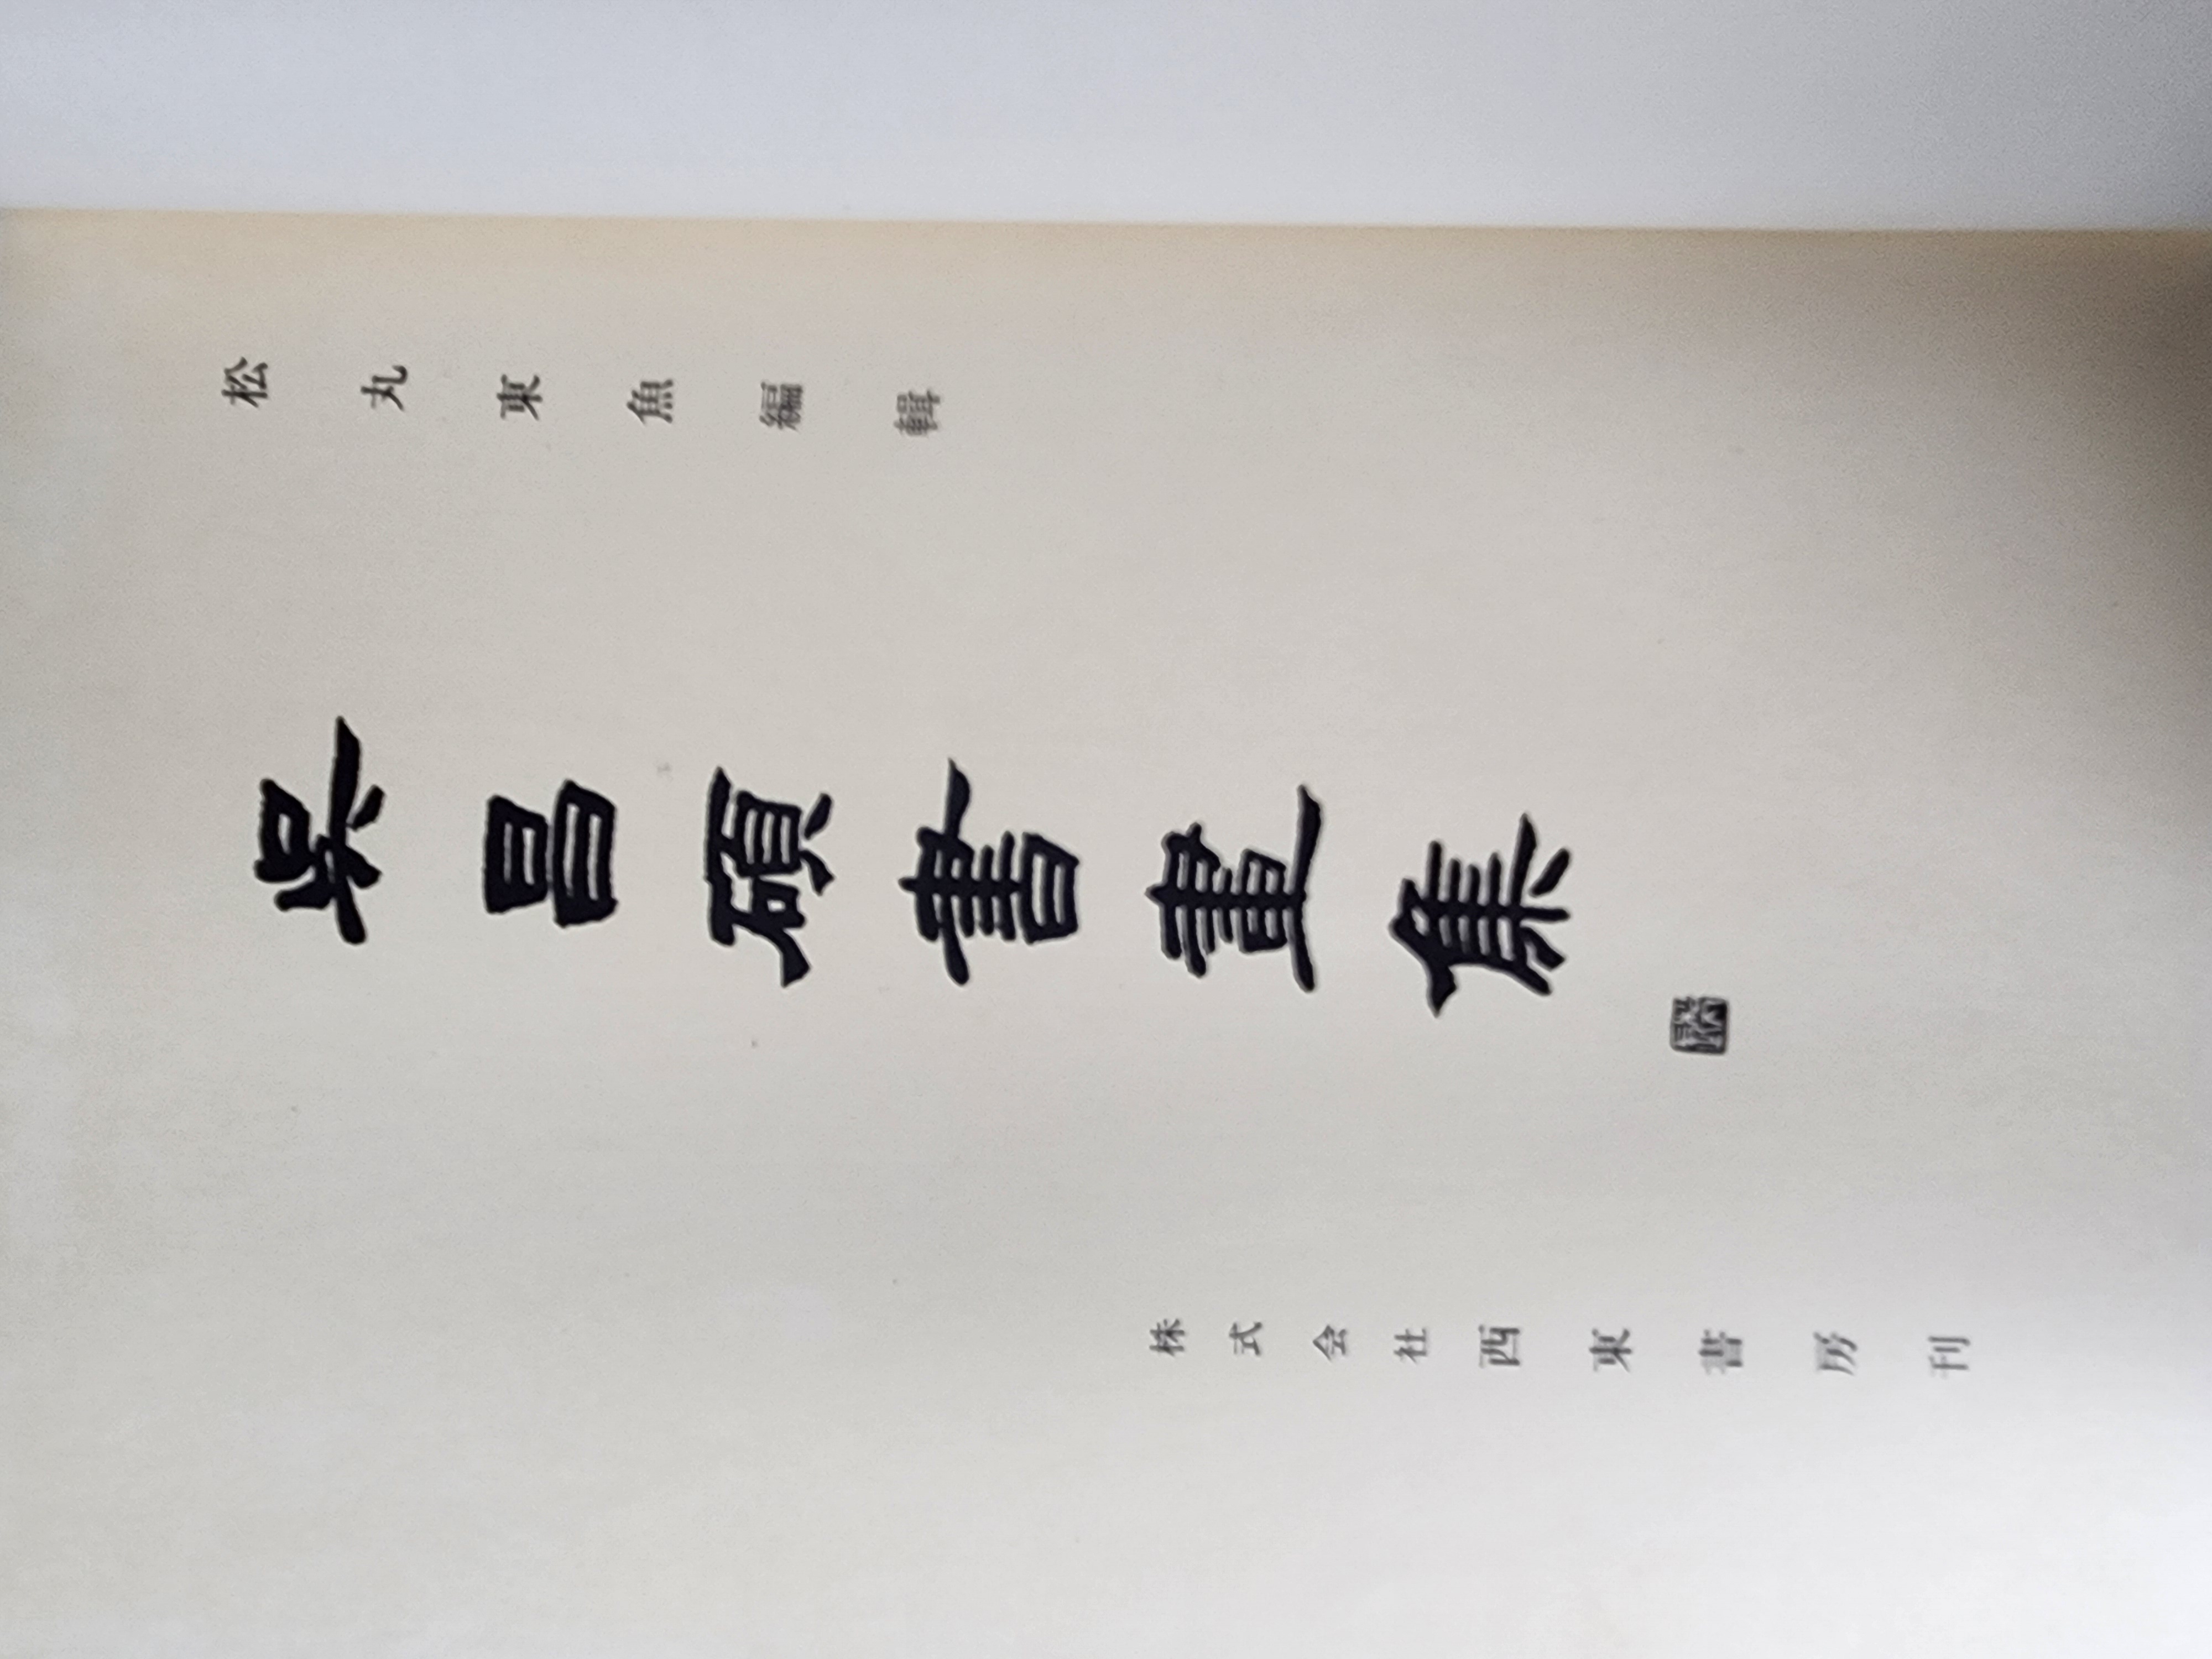 松丸東魚編輯
吴昌碩書畫集
株式会社西東書房刊